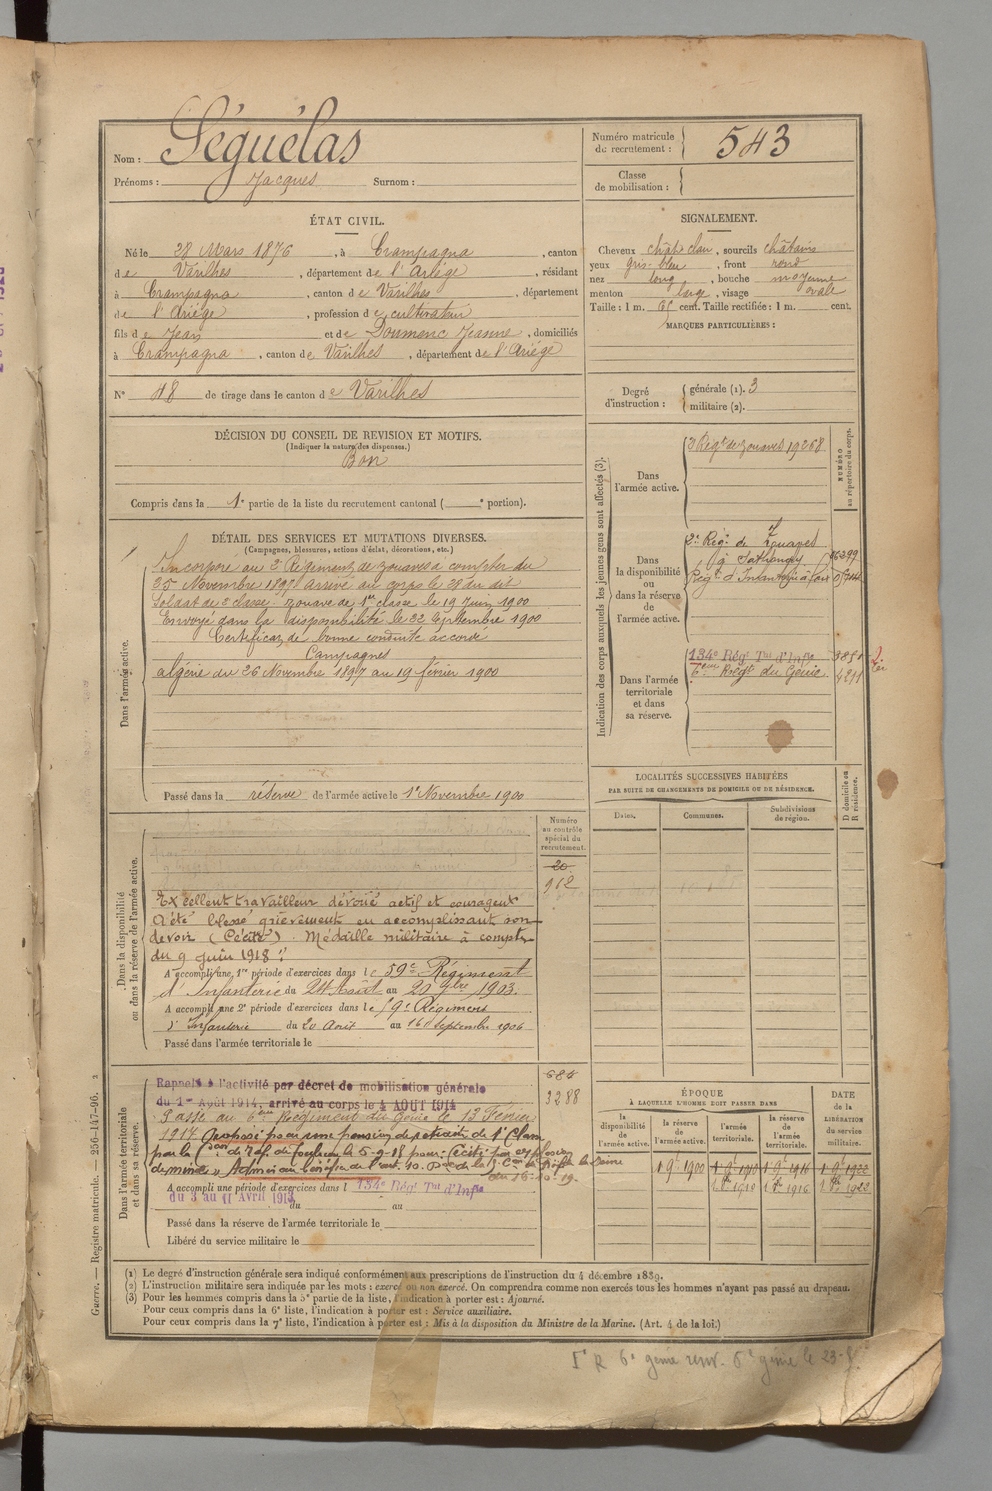 Nom : Séguélas
Prénoms : Jacques Surnom :
Numéro matricule du recrutement : 543
Classe de mobilisation :
ÉTAT CIVIL.
Né le 28 Mars 1876, à Crampagna, canton
de Varilhes, département de l'Ariège, résidant
à Crampagna, canton de Varilhes, département
de l'Ariège, profession de cultivateur
fils de Jean et de Doumenc Jeanne, domiciliés
à Crampagna, canton de Varilhes, département de l'Ariège
N° 48 de tirage dans le canton de Varilhes
SIGNALEMENT.
Cheveux chât clair, sourcils châtains
yeux gris-bleu, front rond
nez long, bouche moyenne
menton large, visage ovale
Taille : 1 m. 65 cent. Taille rectifiée : 1 m. cent.
MARQUES PARTICULIÈRES :
Degré d'instruction : générale (1). 3
militaire (2).
DÉCISION DU CONSEIL DE REVISION ET MOTIFS.
(Indiquer la nature des dispenses.)
Bon
Compris dans la 1e partie de la liste du recrutement cantonal ( e portion).
DÉTAIL DES SERVICES ET MUTATIONS DIVERSES.
(Campagnes, blessures, actions d'éclat, décorations, etc.)
Dans l'armée active.
Incorporé au 2e Régiment de zouaves à compter du
25 Novembre 1897 arrivé au corps le 28 du dit
Soldat de 2e classe. zouave de 1re classe le 19 Juin 1900
Envoyé dans la disponibilité le 22 Septembre 1900
Certificat de bonne conduite accordé
Campagnes
algérie du 26 Novembre 1897 au 19 février 1900
Passé dans la réserve de l'armée active le 1er Novembre 1900
Indication des corps auxquels les jeunes gens sont affectés (3).
NUMÉRO au répertoire du corps.
Dans l'armée active.
2 Régt de zouaves 19268
Dans la disponibilité ou dans la réserve de l'armée active.
2e Rég. de Zouaves
Régt d'Infanterie à Foix
Dans l'armée territoriale et dans sa réserve.
134e Régt Tal d'Infie
6ème Régt du Génie 4211
LOCALITÉS SUCCESSIVES HABITÉES
PAR SUITE DE CHANGEMENTS DE DOMICILE OU DE RÉSIDENCE.
Dates. Communes. Subdivisions de région. D domicile ou R résidence.
Dans la disponibilité ou dans la réserve de l'armée active.
Numéro au contrôle spécial du recrutement.
20
912
Excellent travailleur dévoué actif et courageux
A été blessé grièvement en accomplissant son
devoir (Cécité). Médaille militaire à compter
du 9 juin 1918 :
A accompli une 1re période d'exercices dans le 59e Régiment
d'Infanterie du 24 Août au 20 7bre 1903.
A accompli une 2e période d'exercices dans le 59e Régiment
d'Infanterie du 20 Août au 16 Septembre 1906
Passé dans l'armée territoriale le
Dans l'armée territoriale et dans sa réserve.
685
3288
Rappelé à l'activité par décret de mobilisation générale
du 1er Août 1914, arrivé au corps le 4 AOUT 1914
Passé au 6ème Régiment du Génie le 13 Février
1917 Proposé pour une pension de retraite de 1e Classe
par la Con de réf. de le 5-9-18 pour : Cécité par explosion
de mine » Admis au bénéfice de l'art. 10.
du 16-10-19.
A accompli une période d'exercices dans l 134e Régt Tal d'Infie
du 3 au 11 Avril 1913 du au
Passé dans la réserve de l'armée territoriale le
Libéré du service militaire le
ÉPOQUE
À LAQUELLE L'HOMME DOIT PASSER DANS
la disponibilité de l'armée active. la réserve de l'armée active. l'armée territoriale. la réserve de l'armée territoriale.
DATE de la LIBÉRATION du service militaire.
1 9e 1900 1 9e 1910 1 9e 1916 1 9e 1922
1 8e 1910 1 8e 1916 1 8e 1922
(1) Le degré d'instruction générale sera indiqué conformément aux prescriptions de l'instruction du 4 décembre 1889.
(2) L'instruction militaire sera indiquée par les mots : exercé ou non exercé. On comprendra comme non exercés tous les hommes n'ayant pas passé au drapeau.
(3) Pour les hommes compris dans la 5e partie de la liste, l'indication à porter est : Ajourné.
Pour ceux compris dans la 6e liste, l'indication à porter est : Service auxiliaire.
Pour ceux compris dans la 7e liste, l'indication à porter est : Mis à la disposition du Ministre de la Marine. (Art. 4 de la loi.)
Guerre. — Registre matricule. — 256-147-96. 2